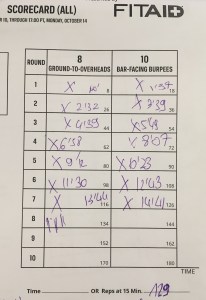 SCORECARD (ALL)
THROUGH 11:00 PM, MONDAY, OCTOBER 14
FITAID
ROUND
8
GROUND-TO-OVERHEADS
10
BAR-FACING BURPEES
1 X 8 X 1'37 18
2 X 2'32 26 X 3'39 36
3 X 4'39 44 X 5'49 54
4 X 6'38 62 X 8'07 72
5 X 9'12 80 X 10'23 90
6 X 11'30 98 X 12'43 108
7 X 13'44 116 X 14'41 126
8 134 144
9 152 162
10 170 180
TIME
Time OR Reps at 15 Min. 129